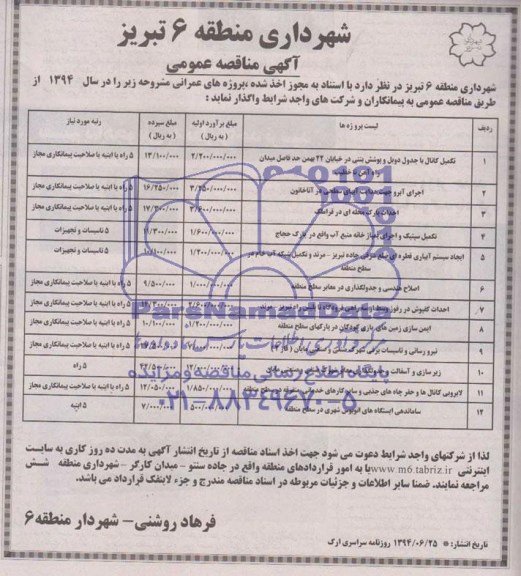 شهرداری منطقه ۶ تبریز
آگهی مناقصه عمومی
شهرداری منطقه ۶ تبریز در نظر دارد با استناد به مجوز اخذ شده ،پروژه های عمرانی مشروحه زیر را در سال ۱۳۹۴ از
طریق مناقصه عمومی به پیمانکاران و شرکت های واجد شرایط واگذار نماید :
ردیف لیست پروژه ها مبلغ برآورد اولیه (به ریال) مبلغ سپرده (به ریال) رتبه مورد نیاز
۱ تکمیل کانال با جدول دوبل و پوشش بتنی در خیابان ۲۲ بهمن حد فاصل میدان ۲/۲۰۰/۰۰۰/۰۰۰ ۱۳/۱۰۰/۰۰۰ ۵ راه یا ابنیه با صلاحیت پیمانکاری مجاز
۲ اجرای آبرو جهت هدایت آبهای سطحی در آناخاتون ۳/۲۵۰/۰۰۰/۰۰۰ ۱۶/۲۵۰/۰۰۰ ۵ راه یا ابنیه با صلاحیت پیمانکاری مجاز
۳ احداث پارک محله ای در قراملک ۳/۶۰۰/۰۰۰/۰۰۰ ۵ راه یا ابنیه با صلاحیت پیمانکاری مجاز
۴ تکمیل سپتیک و اجرای نمازخانه منبع آب واقع در پارک حجاج ۱/۶۰۰/۰۰۰/۰۰۰ ۱۱/۳۰۰/۰۰۰ ۵ تاسیسات و تجهیزات
۵ ایجاد سیستم آبیاری قطره ای ضلع شرقی جاده تبریز – مرند و تکمیل شبکه آب خام در سطح منطقه ۱/۲۰۰/۰۰۰/۰۰۰ ۱۰/۱۰۰/۰۰۰ ۵ تاسیسات و تجهیزات
۶ اصلاح هندسی و جدولگذاری در معابر سطح منطقه ۱/۰۰۰/۰۰۰/۰۰۰ ۹/۵۰۰/۰۰۰ ۵ راه یا ابنیه با صلاحیت پیمانکاری مجاز
۷ احداث کفپوش در رفوژ وسط تبریز – مرند ۵ راه یا ابنیه با صلاحیت پیمانکاری مجاز
۸ ایمن سازی زمین های بازی کودکان در پارکهای سطح منطقه ۱/۲۰۰/۰۰۰/۰۰۰ ۱۰/۱۰۰/۰۰۰ ۵ راه یا ابنیه با صلاحیت پیمانکاری مجاز
۹ نیرو رسانی و تاسیسات برقی
۱۰ زیرسازی و آسفالت ۵ راه
۱۱ لایروبی کانال ها و حفر چاه های جذبی و سایر کارهای خدماتی سطح منطقه ۱/۸۵۰/۰۰۰/۰۰۰ ۱۲/۰۵۰/۰۰۰ ۵ راه یا ابنیه با صلاحیت پیمانکاری مجاز
۱۲ ساماندهی ایستگاه های اتوبوس شهری در سطح منطقه ۵۰۰/۰۰۰/۰۰۰ ۷/۰۰۰/۰۰۰ ۵ ابنیه
ParsNamadData
پایگاه اطلاع رسانی مناقصه و مزایده
۰۲۱-۸۸۳۴۹۶۷۰-۵
لذا از شرکتهای واجد شرایط دعوت می شود جهت اخذ اسناد مناقصه از تاریخ انتشار آگهی به مدت ده روز کاری به سایت
اینترنتی www.m6.tabriz.ir یا به امور قراردادهای منطقه واقع در جاده سنتو – میدان کارگر – شهرداری منطقه شش
مراجعه نمایند. ضمنا سایر اطلاعات و جزئیات مربوطه در اسناد مناقصه مندرج و جزء لاینفک قرارداد می باشد.
فرهاد روشنی – شهردار منطقه ۶
تاریخ انتشار: * ۱۳۹۴/۰۶/۲۵ روزنامه سراسری ارک